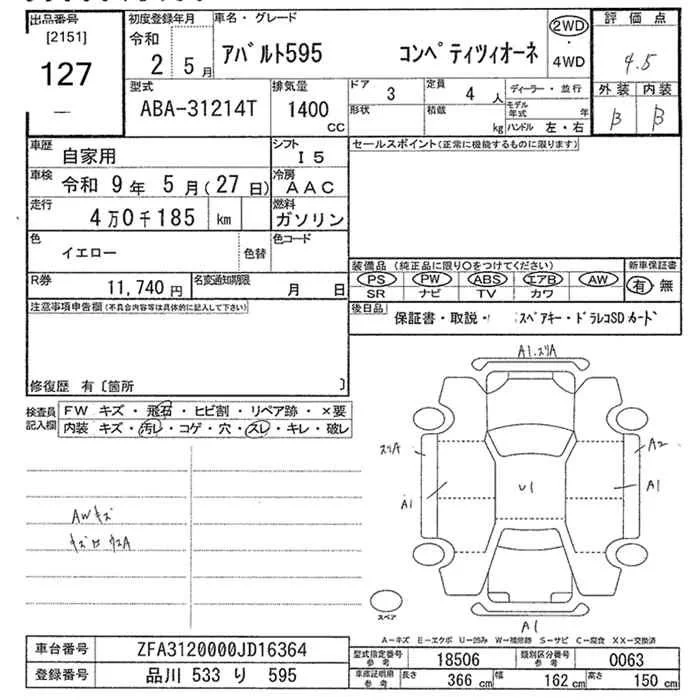 出品番号 初度登録年月 車名・グレード 2WD 評価点
[2151] 令和 アバルト595 コンペティツィオーネ ・
127 2 5月 4WD 4.5
型式 排気量 ドア 3 定員 4人 ディーラー・並行 外装 内装
ABA-31214T 1400 CC 形状 積載 kg モデル年式 年 B B
ハンドル 左・右
車歴 自家用 シフト I5 セールスポイント(正常に機能するものに限ります)
車検 令和 9年 5月(27日) 冷房 AAC
走行 4万0千185 km 燃料 ガソリン
色 イエロー 色替 色コード
装備品(純正品に限り〇をつけてください) 新車保証書
R券 11,740円 名変通知期限 月 日 PS PW ABS エアB AW 有・無
SR ナビ TV カワ
注意事項申告欄(不具合内容等は具体的に記入して下さい) 後日品 保証書・取説・ スペアキー・ドラレコSDカード
修復歴 有〔箇所 〕
検査員記入欄 FW キズ・飛石・ヒビ割・リペア跡・×要
内装 キズ・汚レ・コゲ・穴・スレ・キレ・破レ
A1.スリA
スリA A2
A1 U1 A1
AWキズ
A1
スペア
A-キズ E-エクボ U-凹み W-補修跡 S-サビ C-腐食 XX-交換済
車台番号 ZFA3120000JD16364
型式指定番号 参考 18506 類別区分番号 参考 0063
登録番号 品川 533 り 595
車庫証明用 参考 長さ 366 cm 幅 162 cm 高さ 150 cm